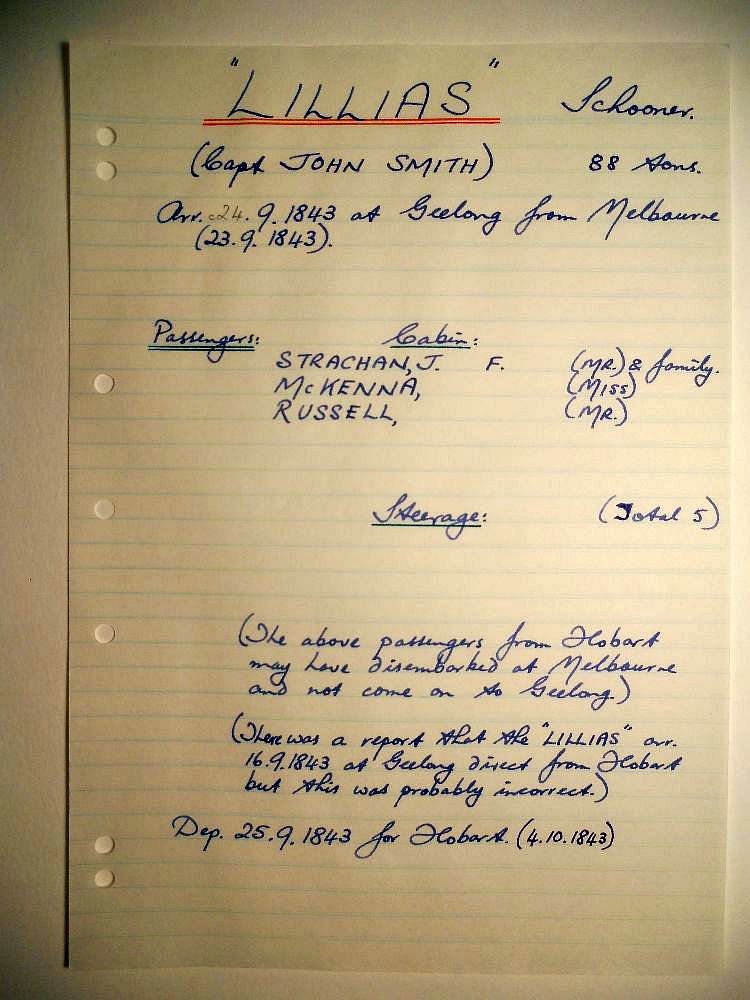 "LILLIAS" Schooner.
(Capt JOHN SMITH) 88 tons.
Arr. c24.9.1843 at Geelong from Melbourne
(23.9.1843).
Passengers: Cabin:
STRACHAN, J. F. (MR.) & family.
McKENNA, (MISS)
RUSSELL, (MR.)
Steerage: (Total 5)
(The above passengers from Hobart
may have disembarked at Melbourne
and not come on to Geelong.)
(There was a report that the "LILLIAS" arr.
16.9.1843 at Geelong direct from Hobart
but this was probably incorrect.)
Dep. 25.9.1843 for Hobart. (4.10.1843)